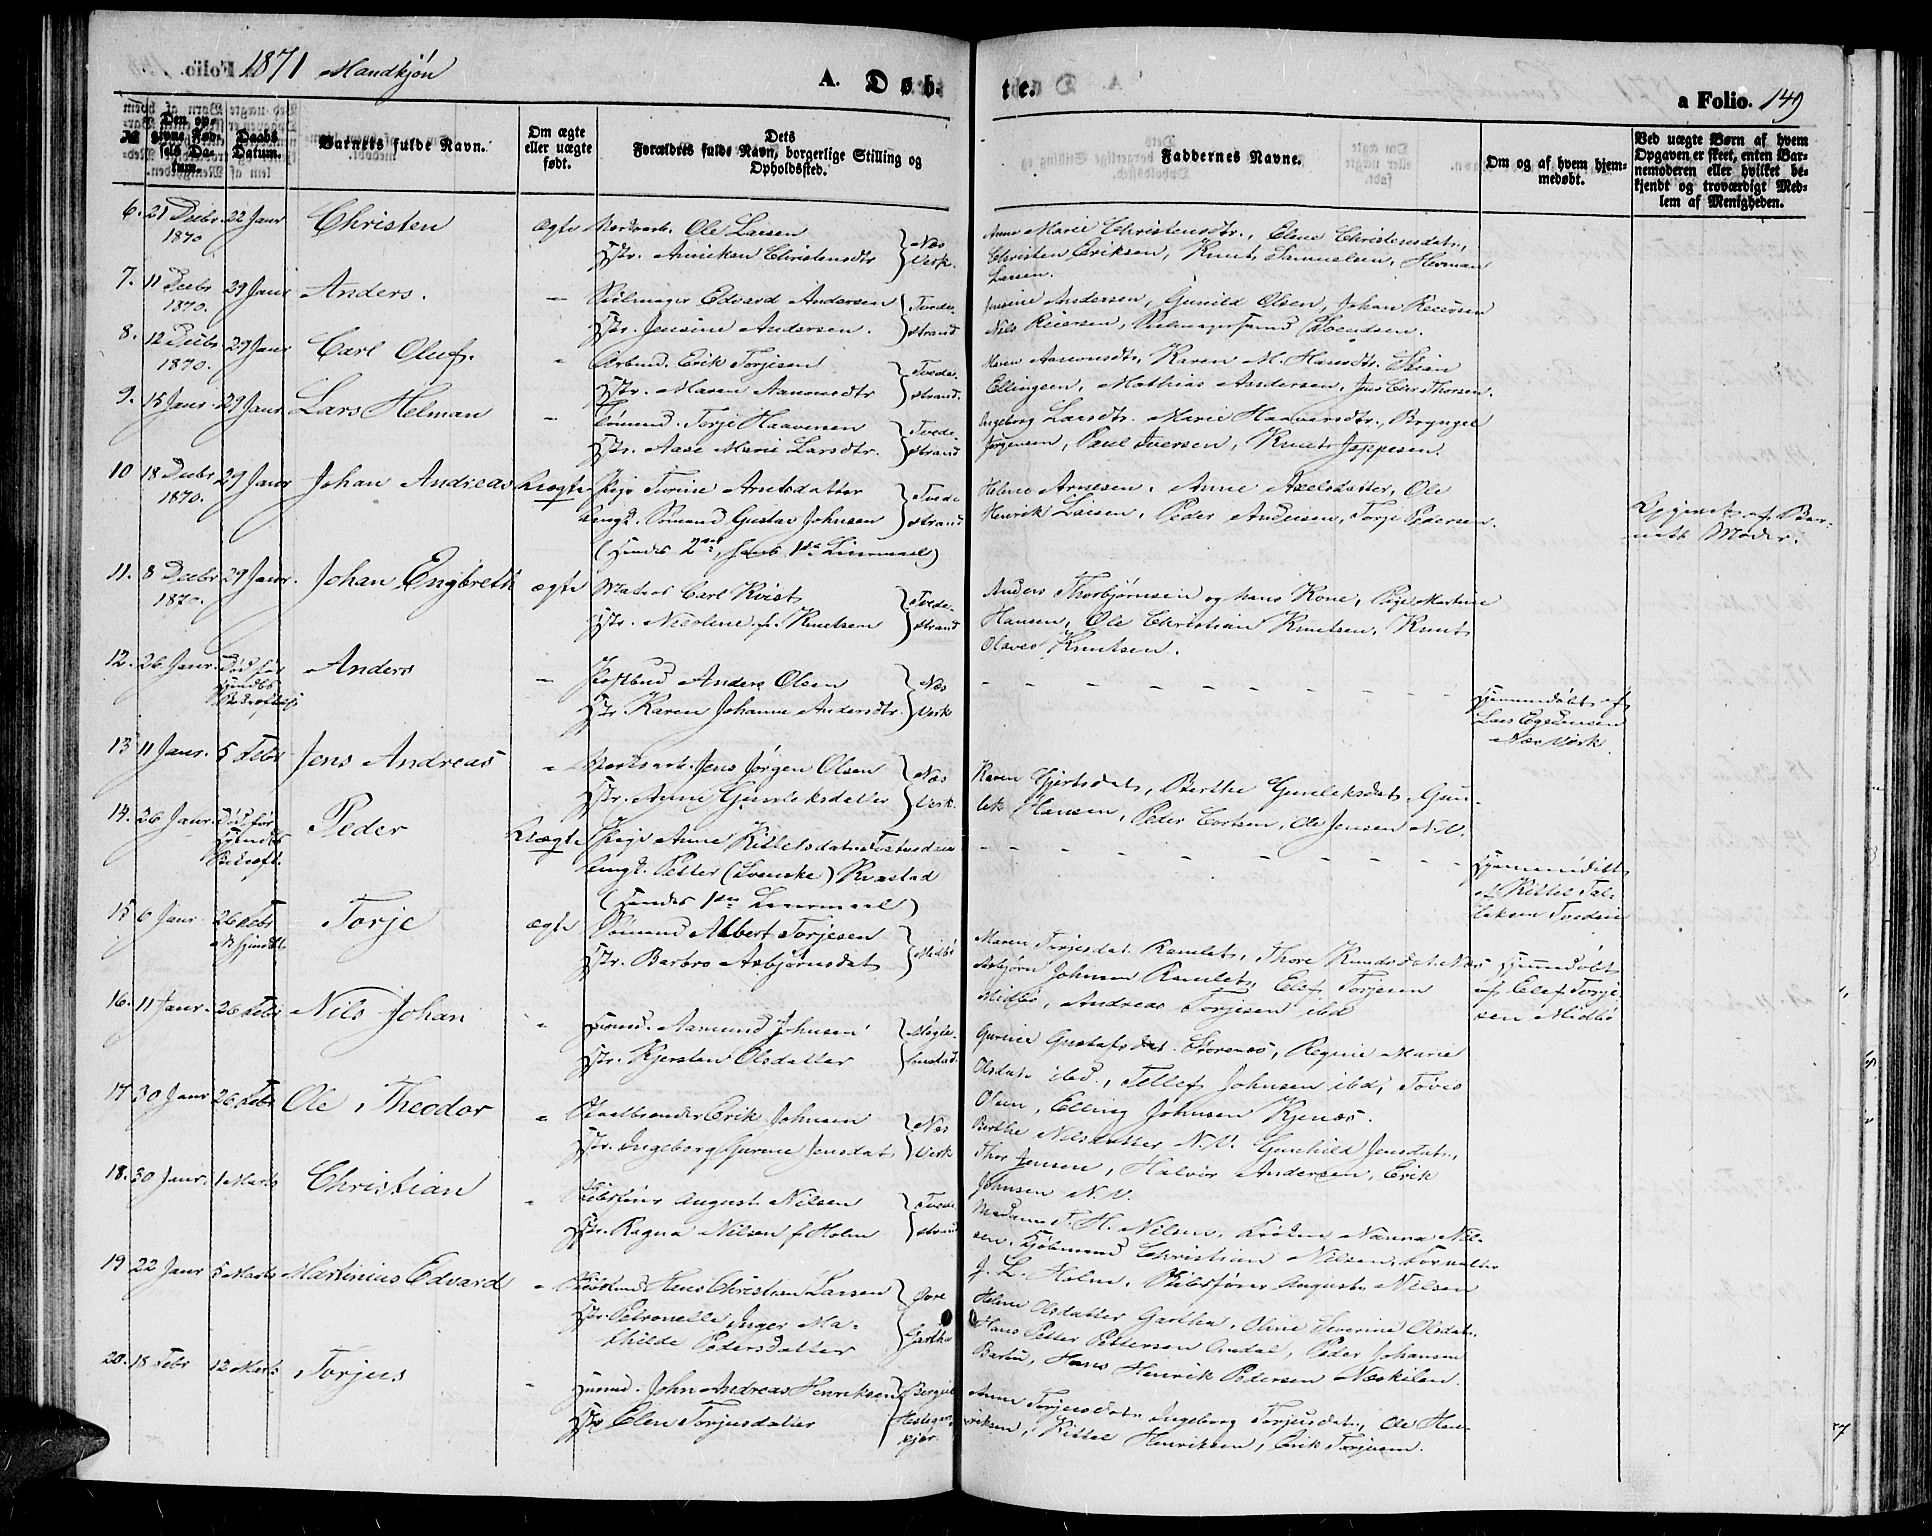 1871 Mandkjøn
A. Døbte.
a Folio. 149
№
Den opgivne Fødsels Datum.
Daabs Datum.
Barnets fulde Navn.
Om ægte eller uægte født.
Dets Forældres fulde Navn, borgerlige Stilling og Opholdssted.
Faddernes Navne.
Om og af hvem hjemmedøbt.
Ved uægte Børn af hvem Opgaven er skeet, enten Barnemoderen eller hvilket bekjendt og troværdigt Medlem af Menigheden.
6. 21 Decbr 1870 22 Janr Christen ægte Ole Larsen
Hstr. Anniken Christensdtr Næs Verk.
Anne Marie Christensdtr., Elene Christensdatr,
Christen Eriksen, Knut Samuelsen, Herman
Larsen.
7. 11 Decbr 1870. 29 Janr Anders. Seilmager Edvard Andersen
Hstr. Jensine Andersen. Tvedestrand
Jensine Andersen, Gunild Olsen, Johan Reiersen
Nils Reiersen, Svendsen.
8. 12 Decbr 1870. 29 Janr Carl Oluf. Arbmd. Erik Torjesen
Hstr. Maren Aanonsdtr Tvedestrand.
Maren Aanonsdtr, Karen M. Hansdtr.
Ellingsen, Mathias Andersen, Jens Chr. Thorsen.
9. 15 Janr 29 Janr Lars Helman Sømand. Torje Haaversen
Hstr. Aase Marie Larsdtr. Tvedestrand
Ingeborg Larsdtr. Marie Haaversdtr., Bryngel
Jørgensen, Paul Iversen, Knut Jeppesen.
10 18 Decbr 1870. 29 Janr Johan Andreas Uægte Pige Turine Arnesdatter
Ungk. Sømand Gustav Johnsen Tvedestrand
(Hendes 2det, hans 1ste Leiermaal)
Helene Arnesen, Anne Axelsdatter, Ole
Henrik Larsen, Peder Andersen, Torje Pedersen.
Opgivet af Barnets Moder.
11. 8 Decbr 1870. 29 Janr. Johan Engbreth ægte Matros Carl Kvist
Hstr. Nicoline f. Knutsen Tvedestrand
Anders Thorbjørnsen og hans Kone, Pige Martine
Hansen, Ole Christian Knutsen, Knut
Olaves Knutsen.
12. 26 Janr. Død før Anders Postbud Anders Olsen
Hstr. Karen Johanne Andersdtr. Næs Verk
Hjemmedøbt af
Lars
Næs Værk.
13 11 Janr. 5 Febr Jens Andreas Jens Jørgen Olsen
Hstr. Anne Gunleksdatter Næs Verk.
Karen Gjertsdatr, Berthe Gunleksdatr, Gunlek Hansen, Peder Evertsen, Ole Jensen N.V.
14. 26 Janr. Død før Peder Uægte Pige Anne Kittelsdatr Tvedseie
Ungk. Petter (Svenske) Kvastad
(Hendes 1ste Leiermaal)
Hjemmedøbt
af Kittel
Tvedseie
15 6 Janr 26 Febr Torje ægte Sømand Albert Torjesen
Hstr. Barbro Asbjørnsdatr Midbø
Maren Torjesdat. Ramlet, Thore Knudsdat. Næs
Asbjørn Johnsen Ramlet, Elef Torjesen
Midbø, Andreas Torjesen ibd
Hjemmedøbt
af Elef Torjesen Midbø
16. 11 Janr. 26 Febr Nils Johan Aamund Johnsen
Hstr. Kjersten Olsdatter
Gurine Gustafsdat. Storenæs, Regine Marie
Olsdatr ibd., Tellef Johnsen ibd, Toves
Olsen, Elling Johnsen Kjenæs.
17 30 Janr 26 Febr Ole Theodor Erik Johnsen
Hstr. Ingeborg Gurine Jensdat Næs Verk
Berthe Nilsdatter N.V. Gunhild Jensdatr,
Thor Jensen, Halvor Andersen, Erik
Johnsen N.V.
18. 30 Janr. 1 Marts Christian Skibsfører August Nilsen
Hstr. Ragna Nilsen f. Holm Tvedestrand
Madame T. H. Nilsen, Frøken Nanna Nilsen, Kjøbmand Christian Nilsen,
J. L. Holm, Skibsfører August Nilsen
19 22 Janr 5 Marts Martinius Edvard Hans Christian Larsen
Hstr. Petronelle Inger Mathilde Pedersdatter Gartha
Helene Olsdatter Gartha, Oline Severine Olsdatr,
Hans Petter Pettersen Omdal, Peder Johansen
Hans Henrik Pedersen Næskilen.
20. 18 Febr 12 Marts Torjus Husmd. John Andreas Henriksen
Hstr Elen Torjusdatter
Anne Torjusdatr, Ingeborg Torjusdatr, Ole Henriksen, Kittel Henriksen, Erik Torjusen.